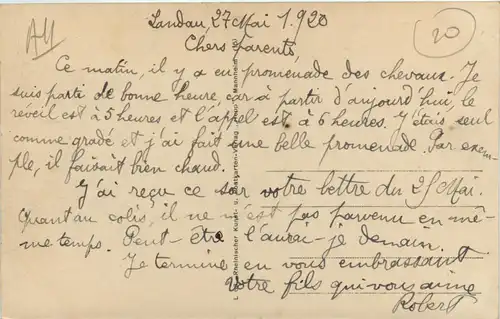 A4
20
Landau, 27 Mai 1.920
Chers Parents,
Ce matin, il y a eu promenade des chevaux. Je
suis parti de bonne heure, car à partir d'aujourd'hui, le
réveil est à 5 heures et l'appel est à 6 heures. J'étais seul
comme gradé et j'ai fait une belle promenade. Par exem-
ple, il faisait bien chaud.
J'ai reçu ce soir votre lettre du 25 Mai.
Quant au colis, il ne m'est pas parvenu en mê-
me temps. Peut-être l'aurai-je demain.
Je termine en vous embrassant
Votre fils qui vous aime
Robert
Rheinischer Kunst- u. Postkarten-Verlag Mannheim